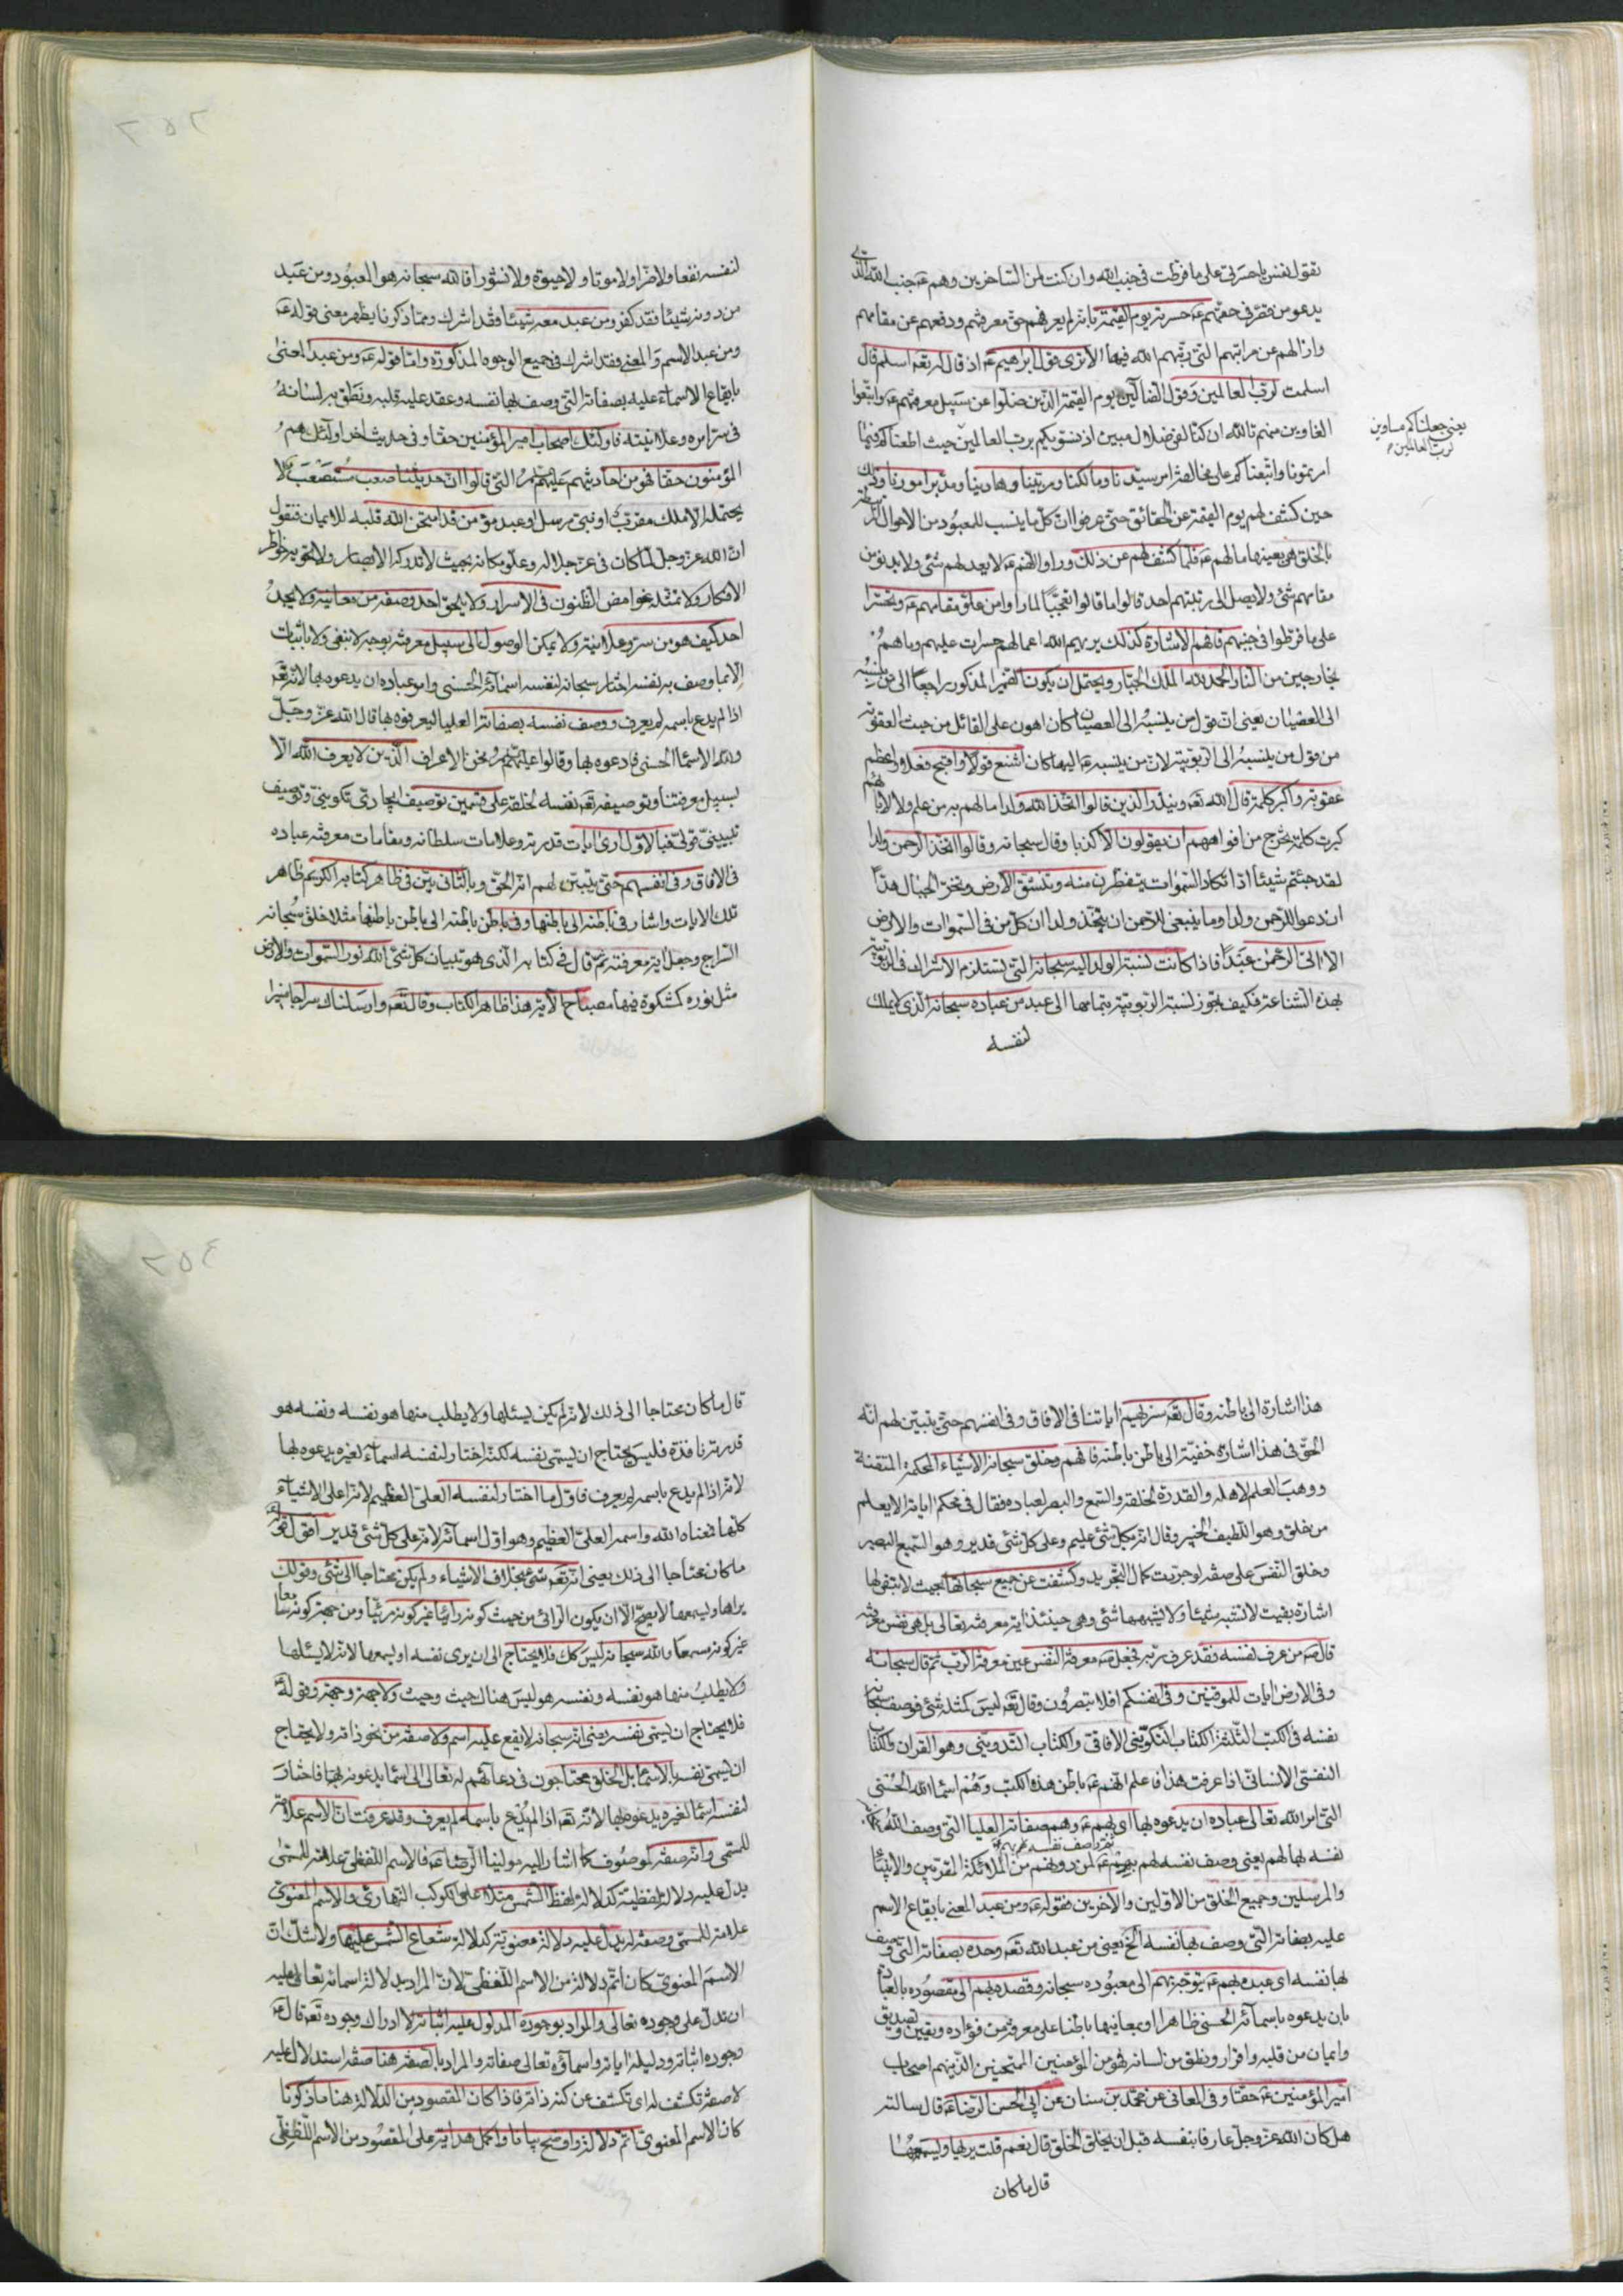 تقول نفس يا حسرتى على ما فرطت فى جنب الله وان كنت لمن الساخرين وهم عه جنب الله الذى
يدعو من فى حقهم عه حسرته يوم القيمة بانه لم يعرفهم حق معرفتهم ودفعهم عن مقامهم
وازالهم عن مراتبهم التى رتبهم الله فيها الا ترى قول ابراهيم عه اذ قال له ربه اسلم قال
اسلمت لرب العالمين وقول الضالين يوم القيمة الذين ضلوا عن سبيل معرفتهم عه واتبعوا
الغاوين منهم تالله ان كنا لفى ضلال مبين اذ نسويكم برب العالمين حيث اطعناكم فيما
يعنى جعلناكم مساوين
لرب العالمين
امرتمونا واتبعناكم على مخالفة امر سيدنا ومالكنا ومربينا وهادينا ومدبر امورنا وذلك
حين كشف لهم يوم القيمة عن الحقائق حتى عرفوا ان كل ما ينسب للمعبود من الاحوال
بالخلق هى بعينها ما لهم عه فلما كشف لهم عن ذلك وراوا انهم عه لا يعدلهم شئ ولا يدنو من
مقامهم شئ ولا يصل الى رتبتهم احد قالوا ما قالوا تعجبا لما راوا من علو مقامهم عه وتحسرا
على ما فرطوا فى جنبهم فافهم الاشارة كذلك يريهم الله اعمالهم حسرات عليهم وما هم
بخارجين من النار والحمد لله الملك الجبار ويحتمل ان يكون الضمير المذكور راجعا الى من ينسبه
الى العصيان يعنى ان قول من ينسبه الى العصيان كان اهون على القائل من حيث العقوبة
من قول من ينسبه الى الربوبية لان من ينسبه عه اليها كان اشنع قولا واقبح فعلا واعظم
عقوبة واكبر كلمة قال الله تعه وينذر الذين قالوا اتخذ الله ولدا ما لهم به من علم ولا لابائهم
كبرت كلمة تخرج من افواههم ان يقولون الا كذبا وقال سبحانه وقالوا اتخذ الرحمن ولدا
لقد جئتم شيئا ادا تكاد السموات يتفطرن منه وتنشق الارض وتخر الجبال هدا
ان دعوا للرحمن ولدا وما ينبغى للرحمن ان يتخذ ولدا ان كل من فى السموات والارض
الا اتى الرحمن عبدا فاذا كانت نسبة الولد اليه سبحانه التى تستلزم الاشراك فى الربوبية
بهذه الشناعة فكيف تجوز نسبة الربوبية بتمامها الى عبد من عباده سبحانه الذى لا يملك
لنفسه
٢٥٢
لنفسه نفعا ولا ضرا ولا موتا ولا حيوة ولا نشورا فالله سبحانه هو المعبود ومن عبد
من دونه شيئا فقد كفر ومن عبد معه شيئا فقد اشرك ومما ذكرنا يظهر معنى قوله عه
ومن عبد الاسم والمعنى فقد اشرك فى جميع الوجوه المذكورة واما قوله عه ومن عبد المعنى
بايقاع الاسماء عليه بصفاته التى وصف بها نفسه وعقد عليه قلبه ونطق به لسانه
فى سرائره وعلانيته فاولئك اصحاب امير المؤمنين حقا وفى حديث اخر اولئك هم
المؤمنون حقا فهو من احاديثهم عليهم السلام التى قالوا ان حديثنا صعب مستصعب لا
يحتمله الا ملك مقرب او نبى مرسل او عبد مؤمن قد امتحن الله قلبه للايمان فنقول
ان الله عز وجل لما كان فى عز جلاله وعلو مكانه بحيث لا تدركه الابصار ولا تحويه خواطر
الافكار ولا تمثله غوامض الظنون فى الاسرار ولا يلحق احد وصفه من معانيه ولا يجد
احد كيف هو من سر وعلانية ولا يمكن الوصول الى سبيل معرفته بوجه لا بنفى ولا باثبات
الا بما وصف به نفسه اختار سبحانه لنفسه اسمائه الحسنى وامر عباده ان يدعوه بها لانه تعه
اذا لم يدع باسمه لم يعرف ووصف نفسه بصفاته العليا ليعرفوه بها قال الله عز وجل
ولله الاسماء الحسنى فادعوه بها وقالوا عليهم السلام نحن الاعراف الذين لا يعرف الله الا
بسبيل معرفتنا وتوصيفه تعه نفسه لخلقه على قسمين توصيف ايجادى تكوينى وتوصيف
تبيينى قولى فبالاول ارى ايات قدرته وعلامات سلطانه ومقامات معرفته عباده
فى الافاق وفى انفسهم حتى يتبين لهم انه الحق وبالثانى بين فى ظاهر كتابه الكريم ظاهر
تلك الايات واشار فى باطنه الى باطنها وفى باطن باطنه الى باطن باطنها مثلا خلق سبحانه
السراج وجعله اية معرفته ثم قال فى كتابه الذى هو تبيان كل شئ الله نور السموات والارض
مثل نوره كمشكوة فيها مصباح الاية هذا ظاهر الكتاب وقال تعه وارسلناك سراجا منيرا
هذا اشارة الى باطنه وقال تعه سنريهم اياتنا فى الافاق وفى انفسهم حتى يتبين لهم انه
الحق فى هذا اشارة خفية الى باطن باطنه فافهم وخلق سبحانه الاشياء المحكمة المتقنة
ووهب العلم لاهله والقدرة لخلقه والسمع والبصر لعباده فقال فى محكم اياته الا يعلم
من خلق وهو اللطيف الخبير وقال انه بكل شئ عليم وعلى كل شئ قدير وهو السميع البصير
وخلق النفس على صفة لو جردت كمال التجريد وكشفت عن جميع سبحاتها بحيث لا تبقى لها
اشارة بقيت لا تشبه شيئا ولا يشبهها شئ وهى حينئذ اية معرفته تعالى بل هى نفس معرفته
قال صه من عرف نفسه فقد عرف ربه فجعل صه معرفة النفس عين معرفة الرب ثم قال سبحانه
وفى الارض ايات للموقنين وفى انفسكم افلا تبصرون وقال تعه ليس كمثله شئ فوصف سبحانه
نفسه فى الكتب الثلثة الكتاب التكوينى الافاقى والكتاب التدوينى وهو القران والكتاب
النفسى الانسانى اذا عرفت هذا فاعلم انهم عه باطن هذه الكتب وهم اسماء الله الحسنى
التى امر الله تعالى عباده ان يدعوه بها اى بهم عه وهم صفاته العليا التى وصف الله
نفسه بها لهم يعنى وصف نفسه لهم بهم عه لمن دونهم من الملائكة المقربين والانبياء
والمرسلين وجميع الخلق من الاولين والاخرين فقوله عه ومن عبد المعنى بايقاع الاسم
عليه بصفاته التى وصف بها نفسه الخ يعنى من عبد الله تعه وحده بصفاته التى وصف
بها نفسه اى عبده بهم عه بتوجهه بهم الى معبوده سبحانه وقصده بهم الى مقصوده بالعبادة
بان يدعوه باسمائه الحسنى ظاهرا وبمعانيها باطنا على معرفة من فؤاده ويقين وتصديق
وايمان من قلبه واقرار ونطق من لسانه فهو من المؤمنين الممتحنين الذينهم اصحاب
امير المؤمنين عه حقا وفى المعانى عن محمد بن سنان عن ابى الحسن الرضا عه قال سالته
هل كان الله عز وجل عارفا بنفسه قبل ان يخلق الخلق قال نعم قلت يريها ويسمعها
قال ما كان
٢٥٤
قال ما كان محتاجا الى ذلك لانه لم يكن يسئلها ولا يطلب منها هو نفسه ونفسه هو
قدرته نافذة فليس يحتاج ان يسمى نفسه لكنه اختار لنفسه اسماء لغيره يدعوه بها
لانه اذا لم يدع باسمه لم يعرف فاول ما اختار لنفسه العلى العظيم لانه اعلى الاشياء
كلها فمعناه الله واسمه العلى العظيم وهو اول اسمائه لانه على كل شئ قدير اقول قوله
ما كان محتاجا الى ذلك يعنى انه تعه شئ بخلاف الاشياء ولم يكن محتاجا الى شئ وقولك
يراها ويسمعها لا يصح الا ان يكون الرائى من حيث كونه رائيا غير كونه مرئيا ومن جهة كونه سامعا
غير كونه مسموعا والله سبحانه ليس كك فلا يحتاج الى ان يرى نفسه او يسمعها لانه لا يسئلها
ولا يطلب منها هو نفسه ونفسه هو ليس هناك حيث وحيث ولا جهة وجهة وقوله عه
فلا يحتاج ان يسمى نفسه يعنى انه سبحانه لا يقع عليه اسم ولا صفة من نحو ذاته ولا يحتاج
ان يسمى نفسه بالاسماء بل الخلق محتاجون فى دعائهم له تعالى الى اسماء يدعونه بها فاختار
لنفسه اسماء لغيره يدعوه بها لانه تعه اذا لم يدع باسمه لم يعرف وقد عرفت ان الاسم علامة
للمسمى وانه صفة لموصوف كما اشار اليه مولينا الرضا عه فالاسم اللفظى علامة للمسمى
يدل عليه دلالة لفظية كدلالة لفظ الشمس مثلا على الكوكب النهارى والاسم المعنوى
علامة للمسمى وصفة له يدل عليه دلالة معنوية كدلالة شعاع الشمس عليها ولا شك ان
الاسم المعنوى كان اتم دلالة من الاسم اللفظى لان المراد بدلالة اسمائه تعالى عليه
ان تدل على وجوده تعالى والمراد بوجوده المدلول عليه اثباته لا ادراك وجوده تعه قال عه
وجوده اثباته ودليله اياته واسماؤه تعالى صفاته والمراد بالصفة هنا صفة استدلال عليه
لا صفة تكشف له اى تكشف عن كنه ذاته فاذا كان المقصود من الدلالة هنا ما ذكرنا
كان الاسم المعنوى اتم دلالة واوضح بيانا واكمل هداية على المقصود من الاسم اللفظى